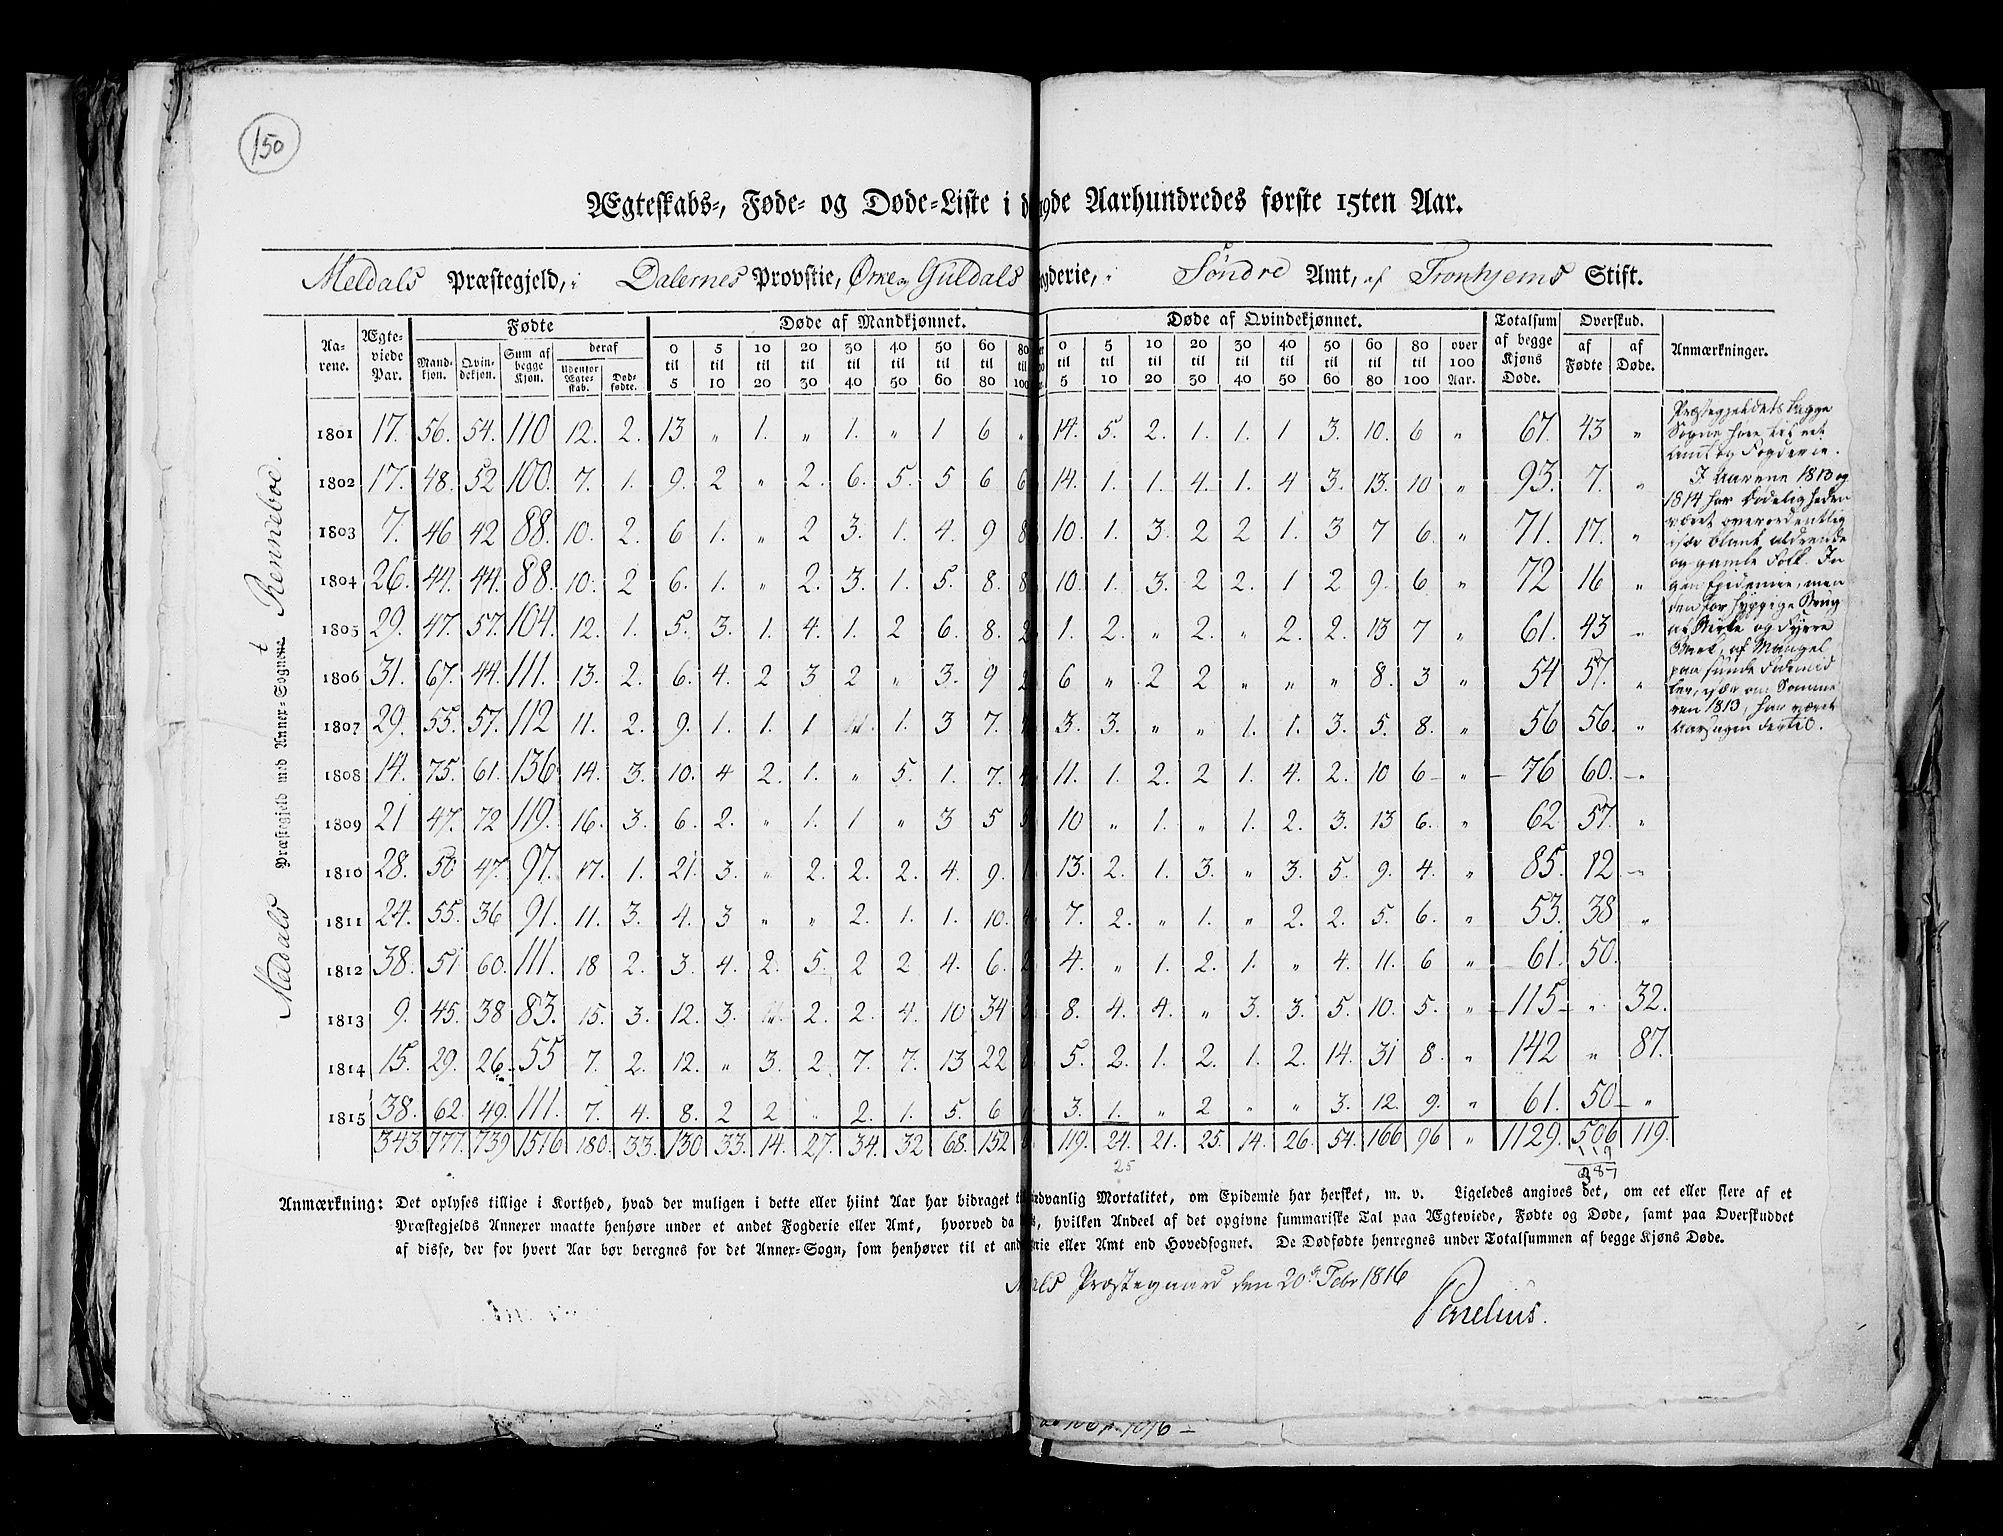 150
Ægteskabs-, Føde- og Døde-Liste i d 19de Aarhundredes første 15ten Aar.
Meldals Præstegjeld, i Dalernes Provstie, Ørke og Guldals gderie, i Söndre Amt, af Tronhjems Stift.
Meldals Præstegjeld med Anner-Sognet Renneboe.
Aarene. | Ægteviede Par. | Fødte | Døde af Mandkjønnet. | Døde af Qvindekjønnet. | Totalsum af begge Kjøns Døde. | Overskud. | Anmærkninger.
Mandkjøn. | Qvindekjøn. | Sum af begge Kjøn. | deraf Udenfor Ægteskab. | Dødfødte. | 0 til 5 | 5 til 10 | 10 til 20 | 20 til 30 | 30 til 40 | 40 til 50 | 50 til 60 | 60 til 80 | 80 til 100 | 0 til 5 | 5 til 10 | 10 til 20 | 20 til 30 | 30 til 40 | 40 til 50 | 50 til 60 | 60 til 80 | 80 til 100 | over 100 Aar. | af Fødte | af Døde.
1801 17. 56. 54. 110 12. 2. 13 „ 1. „ 1. „ 1 6 „ 14. 5. 2. 1. 1. 1 3. 10. 6 „ 67. 43 „
1802 17. 48. 52 100. 7. 1. 9. 2 „ 2. 6. 5. 5 6 6 14. 1. 1. 4. 1. 4 3. 13. 10 „ 93. 7. „
1803 7. 46 42 88. 10. 2. 6 1. „ 2 3. 1. 4. 9 8 10. 1. 3. 2 2 1. 3 7 6. „ 71. 17. „
1804 26. 44. 44. 88. 10. 2 6. 1. „ 2. 3. 1. 5. 8. 8 10. 1. 3. 2 2. 1 2 9. 6 „ 72 16 „
1805 29. 47. 57. 104. 12. 1. 5. 3. 1. 4. 1. 2 6. 8. 2 1. 2. „ 2. „ 2. 2. 13 7 „ 61. 43 „
1806 31. 67. 44. 111. 13. 2. 6. 4. 2 3 2 „ 3. 9 2 6 „ 2 2 „ „ „ 8. 3 „ 54 57. „
1807 29. 55. 57. 112 11. 2. 9. 1. 1. 1 „ 1. 3 7. 3. 3. „ „ 1. 1. 3. 5. 8. „ 56 56. „
1808 14. 75. 61. 136 14. 3. 10. 4 2. 1. „ 5. 1. 7. 4 11. 1. 2 2 1. 4. 2. 10 6 „ 76 60. „
1809 21 47. 72 119. 16. 3. 6. 2. „ 1. 1 „ 3 5 5 10 „ 1. „ 1. 2. 3. 13 6. „ 62. 57. „
1810 28. 50 47. 97. 17. 1. 21. 3. „ 2. 2. 2. 4. 9. 1 13. 2. 1. 3. „ 3. 5. 9. 4. „ 85. 12. „
1811 24. 55. 36 91. 11. 3. 4. 3 „ „ 2. 1. 1. 10. 4 7. 2. „ 1. „ 2 2. 5. 6. „ 53. 38 „
1812 38. 51 60. 111. 18 2. 3. 4. 2. 5. 2 2 4. 6. 2 4. „ 1. 2. 1. „ 4. 11. 6 „ 61. 50.
1813 9. 45. 38 83. 15. 3. 12. 3. „ 2. 2. 4. 10 34 3 8. 4. 4. „ 3. 3. 5. 10. 5. „ 115 „ 32.
1814 15. 29. 26. 55 7. 2. 12. „ 3. 2. 7. 7. 13 22 5. 2. 1. 2. 1. 2. 14. 31 8. „ 142 „ 87.
1815 38. 62. 49. 111. 7. 4. 8. 2 2 „ 2. 1. 5. 6 1 3. 1. „ 2 „ „ 3. 12. 9. „ 61. 50 „
343. 777. 739 1516 180. 33. 130 33. 14. 27. 34. 32 68. 152 119. 24. 21. 25. 14. 26. 54. 166 96 „ 1129. 506 119.
25 119
387
Præstegjeldets begge
Sogne høre til eet
Amt og Fogderie.
I Aarene 1813 og
1814 har Dødeligheden
været overordentlig
især blant aldrende
og gamle Folk. In
gen Epidemie, men
den for hyppige Brug
af Birke og Fyrre
Brød, af Mangel
paa sunde Fødemid
ler, især om Somme
ren 1813, har været
Aarsagen dertil.
Anmærkning: Det oplyses tillige i Korthed, hvad der muligen i dette eller hiint Aar har bidraget t ædvanlig Mortalitet, om Epidemie har hersket, m. v. Ligeledes angives det, om eet eller flere af et
Præstegjelds Annexer maatte henhøre under et andet Fogderie eller Amt, hvorved da s, hvilken Andeel af det opgivne summariske Tal paa Ægteviede, Fødte og Døde, samt paa Overskuddet
af disse, der for hvert Aar bør beregnes for det Anner-Sogn, som henhører til et and rie eller Amt end Hovedsognet. De Dødfødte henregnes under Totalsummen af begge Kjøns Døde.
Præstegaard den 20de Febr 1816